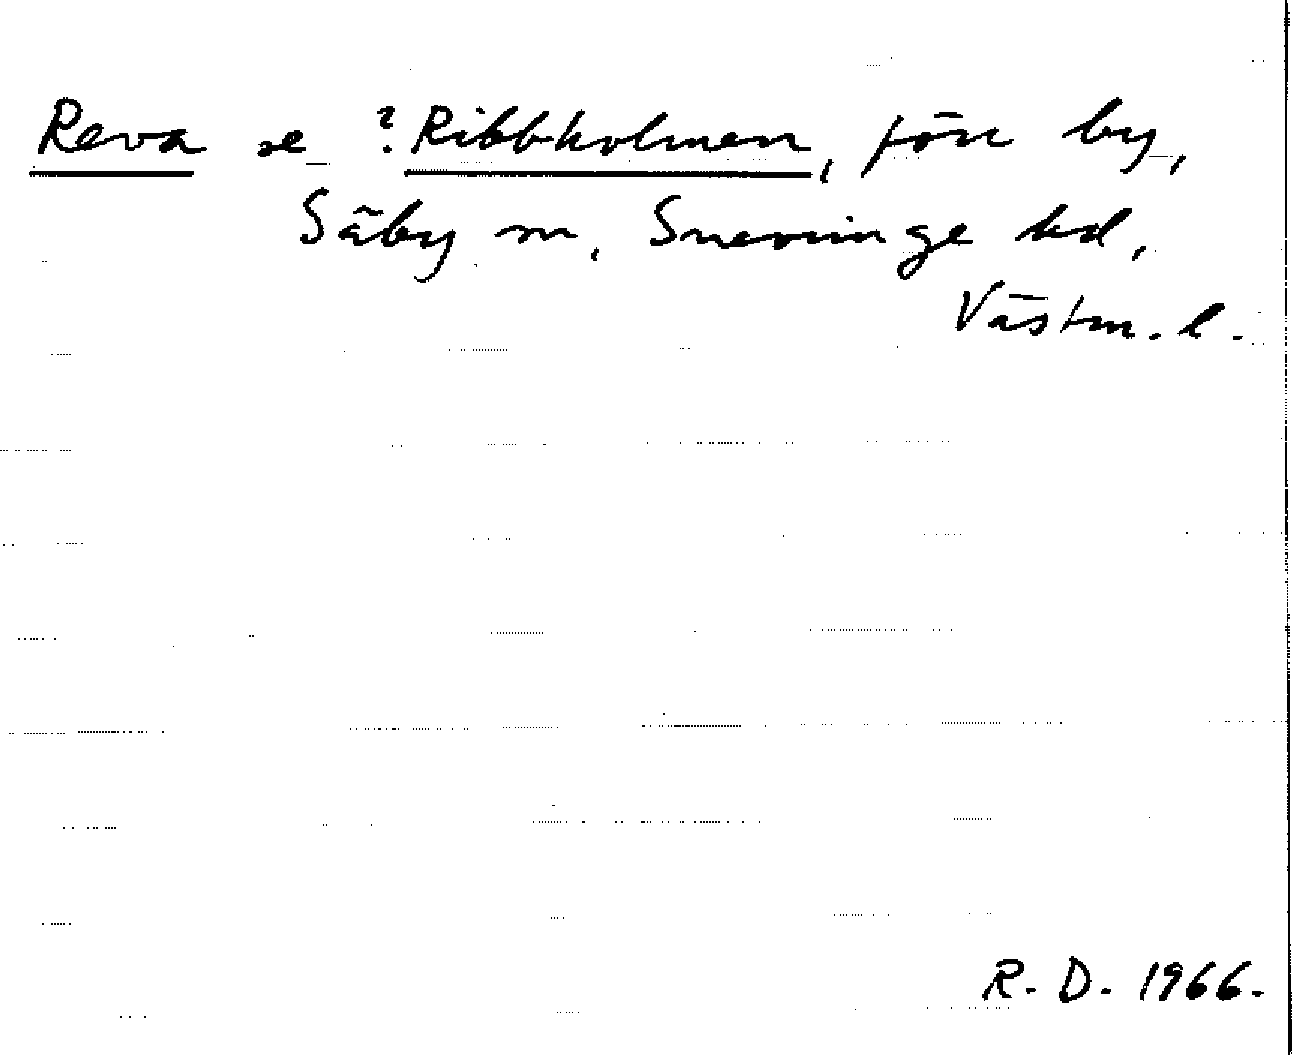 Reva se ?Ribbholmen, förr by,
Säby sn, Snevringe hd,
Västm. l.
R. D. 1966.